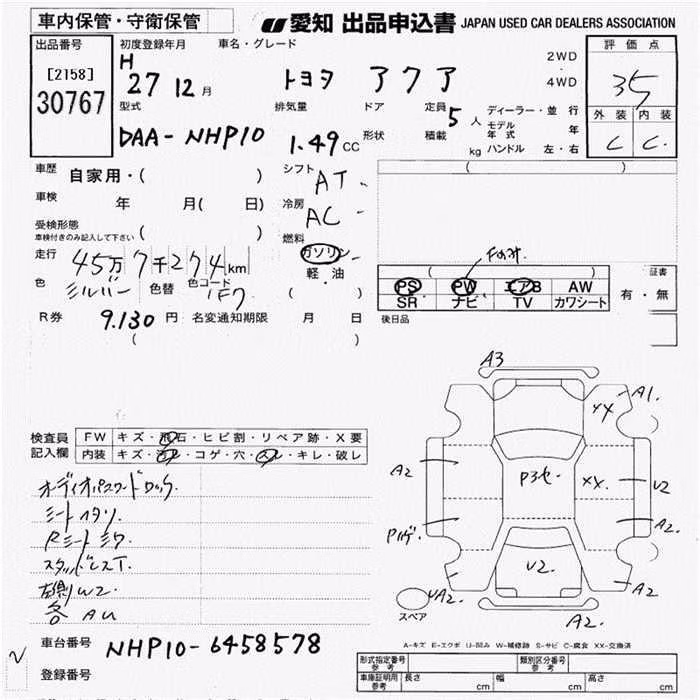 車内保管・守衛保管
JU 愛知 出品申込書 JAPAN USED CAR DEALERS ASSOCIATION
出品番号
[2158]
30767
初度登録年月
H 27 12 月
車名・グレード
トヨタ アクア
2WD
4WD
評価点
35
外装 内装
C C
型式
DAA-NHP10
排気量
1.49 CC
ドア
形状
定員
5 人
積載
kg
ディーラー・並行
モデル年式 年
ハンドル 左・右
車歴
自家用・( )
車検
年 月( 日)
受検形態
車検付きのみ記入して下さい
( )
シフト
AT
冷房
AC
燃料
ガソリン
軽・油
( )
走行
45万 7千274km
色
シルバー
色替
色コード
1F7
R券 9.130 円
名変通知期限 月 日
( )
( )
( )
PS PW エアB AW
SR ナビ TV カワシート
証書
有・無
後日品
検査員記入欄
FW キズ・飛石・ヒビ割・リペア跡・X要
内装 キズ・ヨゴレ・コゲ・穴・スレ・キレ・破レ
オーディオパスワードロック
シートヘタリ
Rシートシワ
左側W2
各AU
A3
A1
XX
A2
P3セ
XX
U2
A2
U2
A2
UA2
A2
スペア
A-キズ E-エクボ U-凹み W-補修跡 S-サビ C-腐食 XX-交換済
車台番号
NHP10-6458578
登録番号
型式指定番号
参考
類別区分番号
参考
車庫証明用
参考
長さ cm 幅 cm 高さ cm